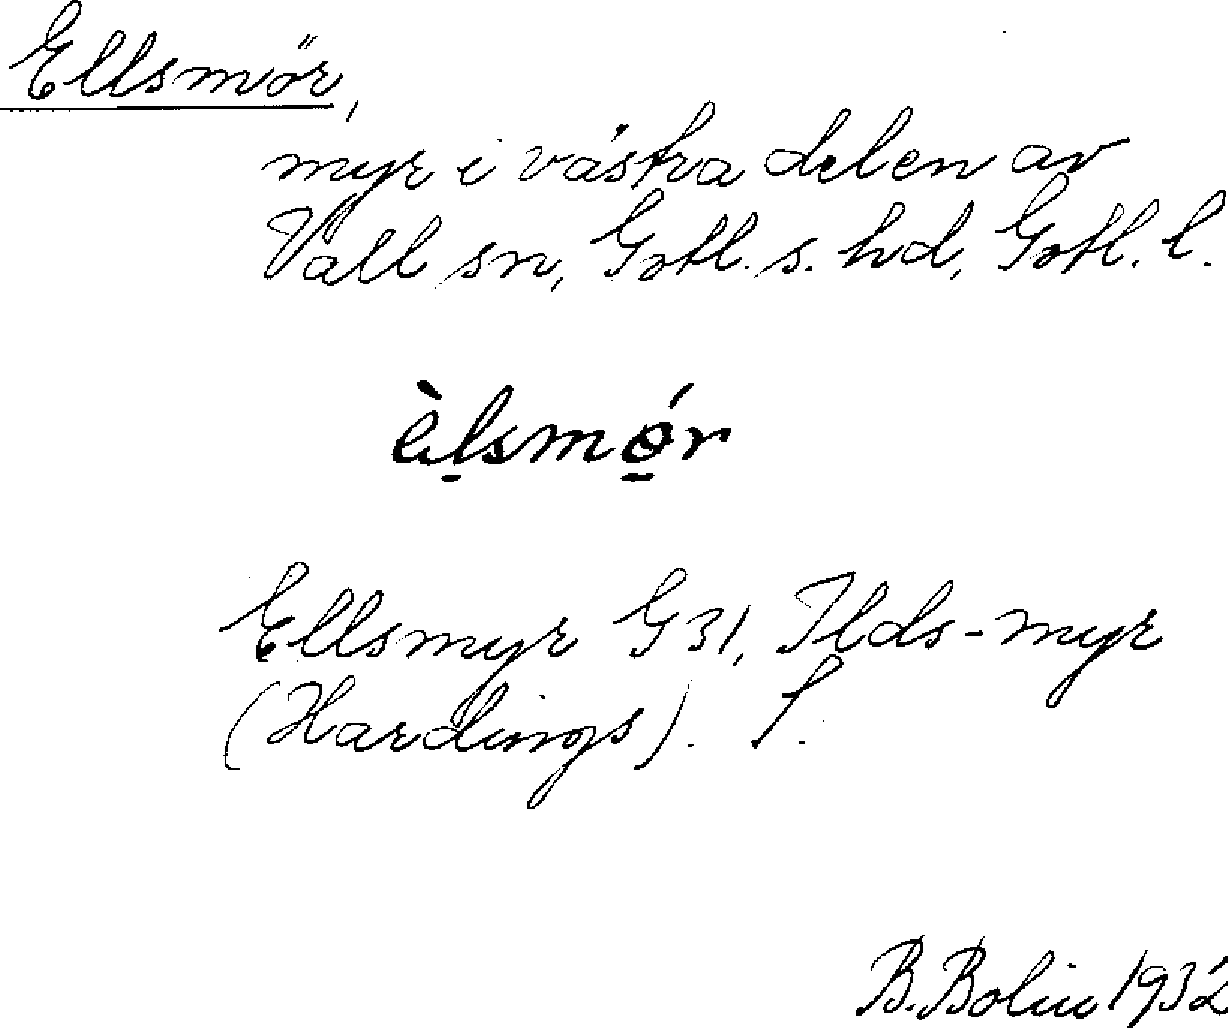 Ellsmör,
myr i västra delen av
Vall sn, Gotl. s. hd, Gotl. l.
èl̠smǿ̠r
Ellsmyr G 31, Ilds-myr
(Hardings). S.
B. Bolin 1932